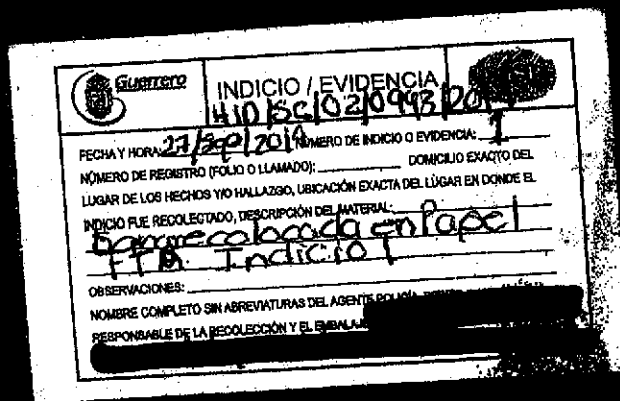 Guerrero
INDICIO / EVIDENCIA
HID/SC/02/0993/20
FECHA Y HORA: 27/Sep/2014 NÚMERO DE INDICIO O EVIDENCIA: 1
NÚMERO DE REGISTRO (FOLIO O LLAMADO): DOMICILIO EXACTO DEL
LUGAR DE LOS HECHOS Y/O HALLAZGO, UBICACIÓN EXACTA DEL LUGAR EN DONDE EL
INDICIO FUE RECOLECTADO, DESCRIPCIÓN DEL MATERIAL:
Sangre colocada en Papel
FTA Indicio 1
OBSERVACIONES:
NOMBRE COMPLETO SIN ABREVIATURAS DEL AGENTE POLICÍA,
RESPONSABLE DE LA RECOLECCIÓN Y EL EMBALAJE